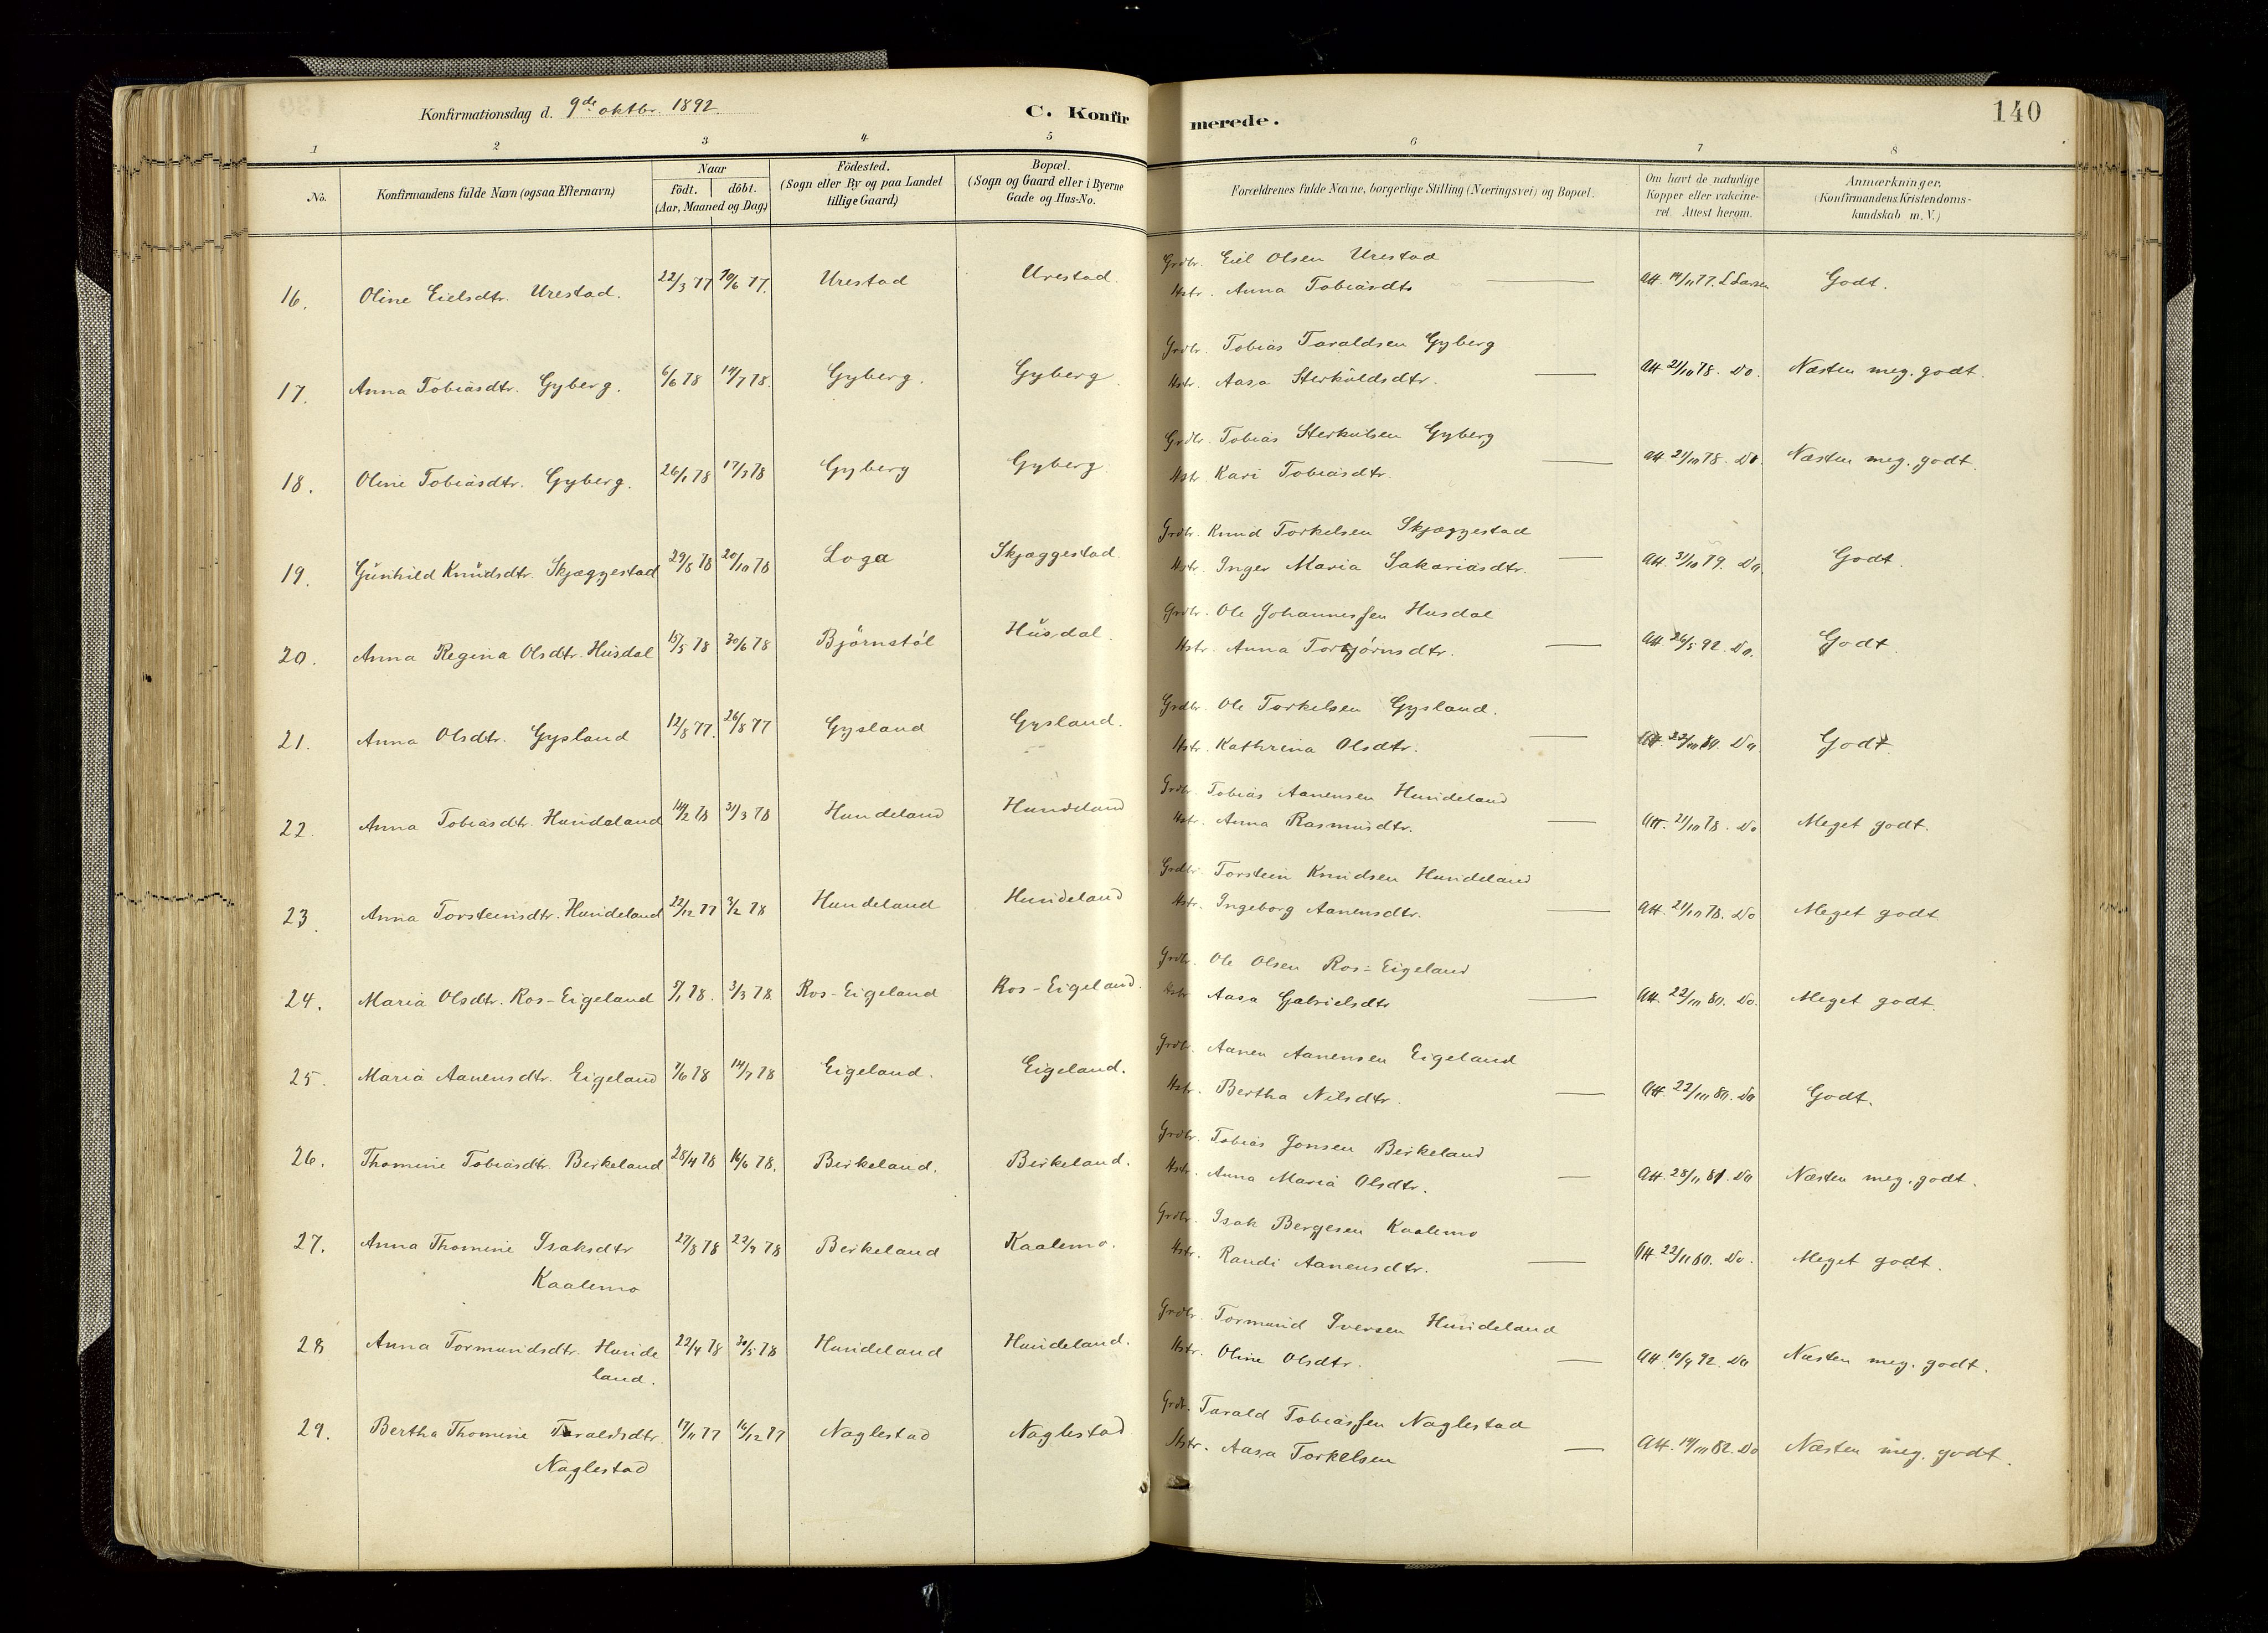 Konfirmationsdag d. 9de oktbr. 1892.
C. Konfirmerede.
140
1 2 3 4 5 6 7 8
No. Konfirmandens fulde Navn (ogsaa Efternavn) Naar födt. döbt. (Aar, Maaned og Dag) Födested. (Sogn eller By og paa Landet tillige Gaard) Bopæl. (Sogn og Gaard eller i Byerne Gade og Hus-No. Forældrenes fulde Navne, borgerlige Stilling (Næringsvei) og Bopæl. Om havt de naturlige Kopper eller vakcineret. Attest herom. Anmærkninger. (Konfirmandens Kristendomskundskab m. V.)
16. Oline Eielsdtr. Urestad. 22/3 77 10/6 77. Urestad Urestad. Grdbr. Eiel Olsen Urestad
Hstr. Anna Tobiasdtr — Att. 14/11 77. L Larsen Godt.
17. Anna Tobiasdtr. Gyberg. 6/6 78 14/7 78. Gyberg. Gyberg. Grdbr. Tobias Taraldsen Gyberg
Hstr. Aasa Sterkuldsdtr. — Att 21/10 78. Do. Næsten meg. godt.
18. Oline Tobiasdtr. Gyberg. 26/1 78 17/3 78 Gyberg Gyberg Grdbr. Tobias Sterkulsen Gyberg
Hstr. Kari Tobiasdtr. — Att. 21/10 78. Do. Næsten meg. godt.
19. Gunhild Knudsdtr. Skjæggestad 29/8 78 20/10 78 Loga Skjæggestad. Grdbr. Knud Torkelsen Skjæggestad
Hstr. Inger Maria Sakariasdtr. — Att. 31/10 79. Do. Godt.
20. Anna Regina Olsdtr. Husdal 15/5 78 30/6 78 Björnstöl Husdal. Grdbr. Ole Johannessen Husdal
Hstr. Anna Torbjörnsdtr. — Att. 26/5 92. Do. Godt.
21. Anna Olsdtr. Gysland 12/8 77. 26/8 77 Gysland Gysland. Grdbr. Ole Torkelsen Gysland.
Hstr. Kathrina Olsdtr. — Att. 22/10 80. Do Godt.
22. Anna Tobiasdtr. Hundeland 14/2 78 31/3 78 Hundeland Hundeland Grdbr. Tobias Aanensen Hundeland
Hstr. Anna Rasmusdtr. — Att. 21/10 78. Do Meget godt.
23. Anna Torsteinsdtr. Hundeland 22/12 77 3/2 78 Hundeland Hundeland Grdbr. Torstein Knudsen Hundeland
Hstr. Ingeborg Aanensdtr. — Att. 21/10 78. Do Meget godt
24. Maria Olsdtr. Ros-Eigeland 5/1 78. 3/3 78. Ros-Eigeland Ros-Eigeland. Grdbr. Ole Olsen Ros-Eigeland
Hstr Aasa Gabrielsdtr — Att. 22/10 80. Do. Meget godt.
25. Maria Aanensdtr. Eigeland 7/6 78 14/7 78 Eigeland. Eigeland. Grdbr. Aanen Aanensen Eigeland
Hstr. Bertha Nilsdtr. — Att. 22/10 80. Do Godt.
26. Thomine Tobiasdtr. Birkeland 28/4 78 16/6 78. Birkeland. Birkeland. Grdbr. Tobias Jonsen Birkeland
Hstr. Anna Maria Olsdtr. — Att. 28/11 81. Do Næsten meg. godt.
27. Anna Thomine Isaksdtr 27/8 78 22/9 78 Birkeland Kaalemo. Grdbr. Isak Bergesen Kaalemo
Kaalemo Hstr. Randi Aanensdtr. — Att. 22/11 80. Do. Meget godt.
28 Anna Tormundsdtr. Hunde 22/4 78 30/5 78 Hundeland Hundeland. Grdbr. Tormund Iversen Hundeland
land. Hstr. Oline Olsdtr. — Att. 10/9 92. Do Næsten meg. godt.
29. Bertha Thomine Taraldsdtr. 17/11 77 16/12 77 Naglestad Naglestad Grdbr. Tarald Tobiassen Naglestad
Naglestad Hstr. Aasa Torkelsen — Att. 14/10 82. Do Næsten meg. godt.